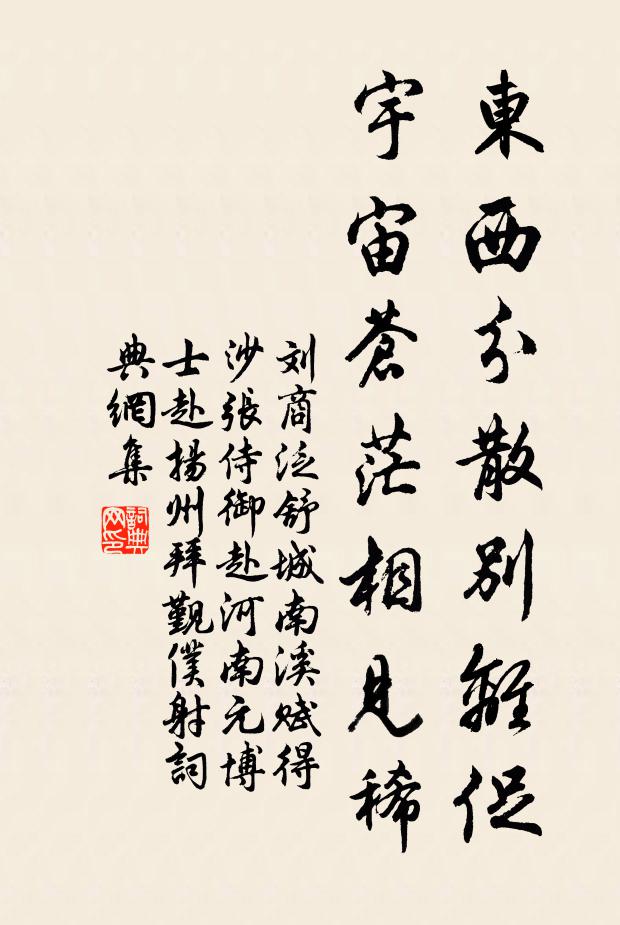 東西分散別離促
宇宙蒼茫相見稀
刘商泛舒城南溪赋得
沙張侍御赴河南元博
士赴揚州拜觐僕射詞
典網集
詞典
网印